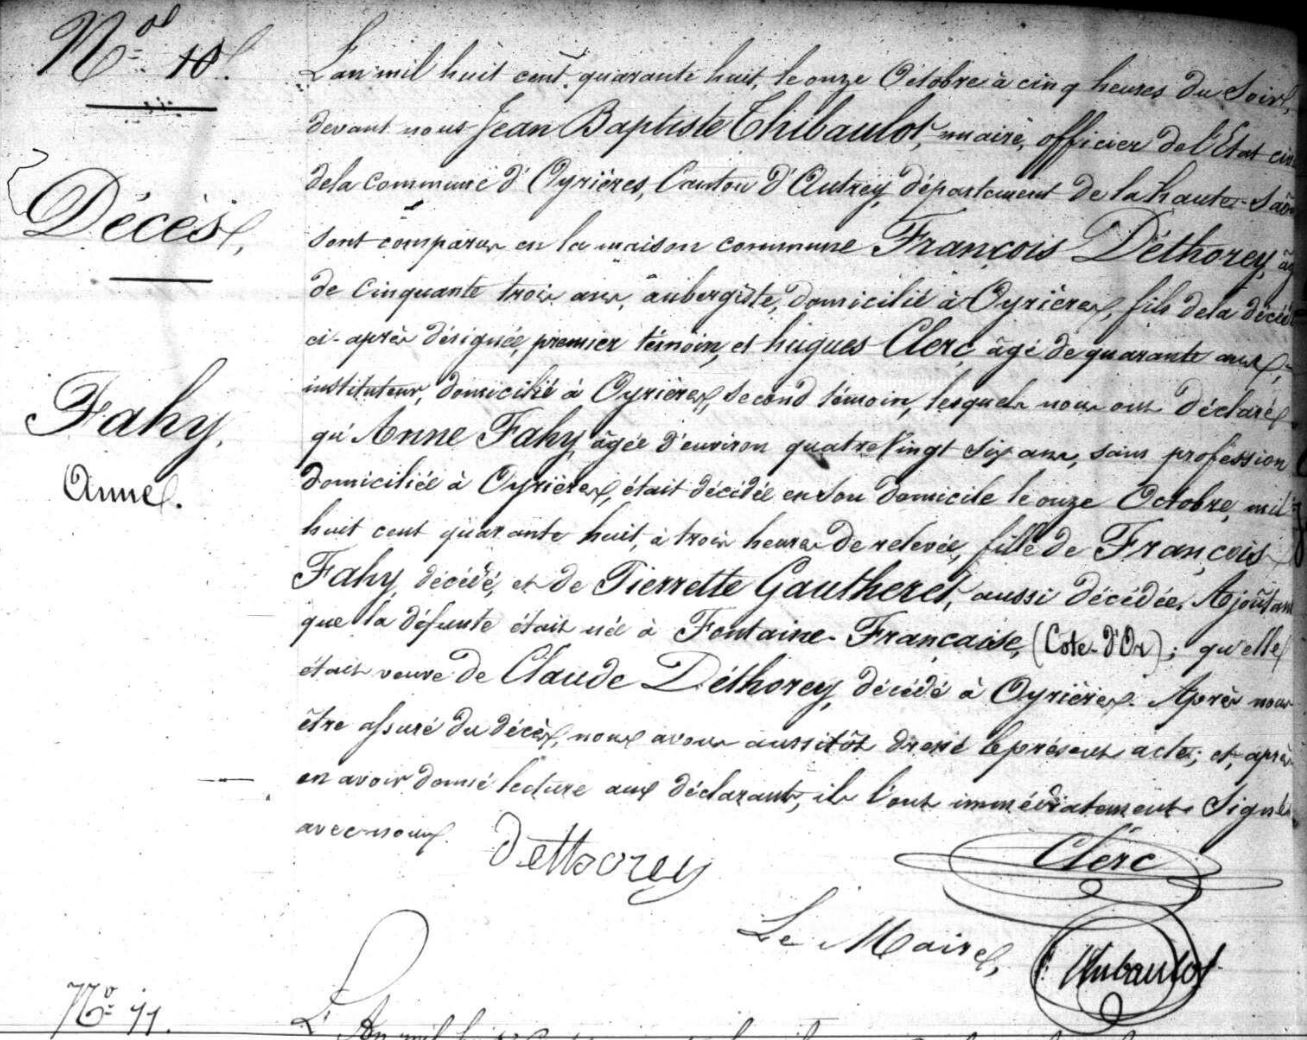 N.º 10.
Décès,
Fahy,
Anne.
L'an mil huit cent quarante huit, le onze Octobre à cinq heures du Soir,
devant nous Jean Baptiste Thibaulot, maire, officier de l'Etat civ
de la commune d'Oyrières, Canton d'Autrey, département de la haute-Saône
sont comparus en la maison commune François Déthorey, âgé
de cinquante trois ans, aubergiste, domicilié à Oyrières, fils de la décédée
ci-après désignée, premier témoin, et hugues Clerc, âgé de quarante ans,
instituteur, domicilié à Oyrières, second témoin, lesquels nous ont déclaré
qu'Anne Fahy, âgée d'environ quatre Vingt six ans, sans profession
domiciliée à Oyrières, était décédée en son domicile le onze Octobre, mil
huit cent quarante huit, à trois heures de relevée, fille de François
Fahy, décédé, et de Pierrette Gautheret, aussi décédée. Ajoutant
que la défunte était née à Fontaine-Française, (Cote-d'Or); qu'elle
était veuve de Claude Déthorey, décédé à Oyrières. Après nous
être assuré du décès, nous avons aussitôt dressé le présent acte; et, après
en avoir donné lecture aux déclarants, ils l'ont immédiatement Signé
avec nous.
Dethorey
Clerc
Le Maire,
Thibaulot
Nº 11.
L'An mil